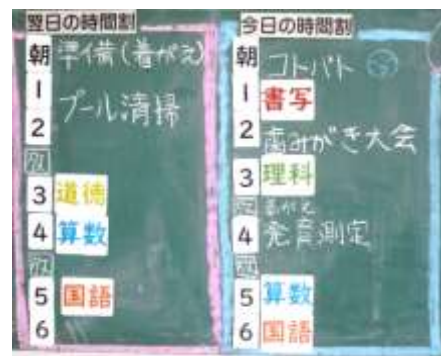 翌日の時間割
朝 準備(着がえ)
1 プール清掃
2
3 道徳
4 算数
5 国語
6
今日の時間割
朝 コトバト
1 書写
2 歯みがき大会
3 理科
着がえ
4 発育測定
5 算数
6 国語